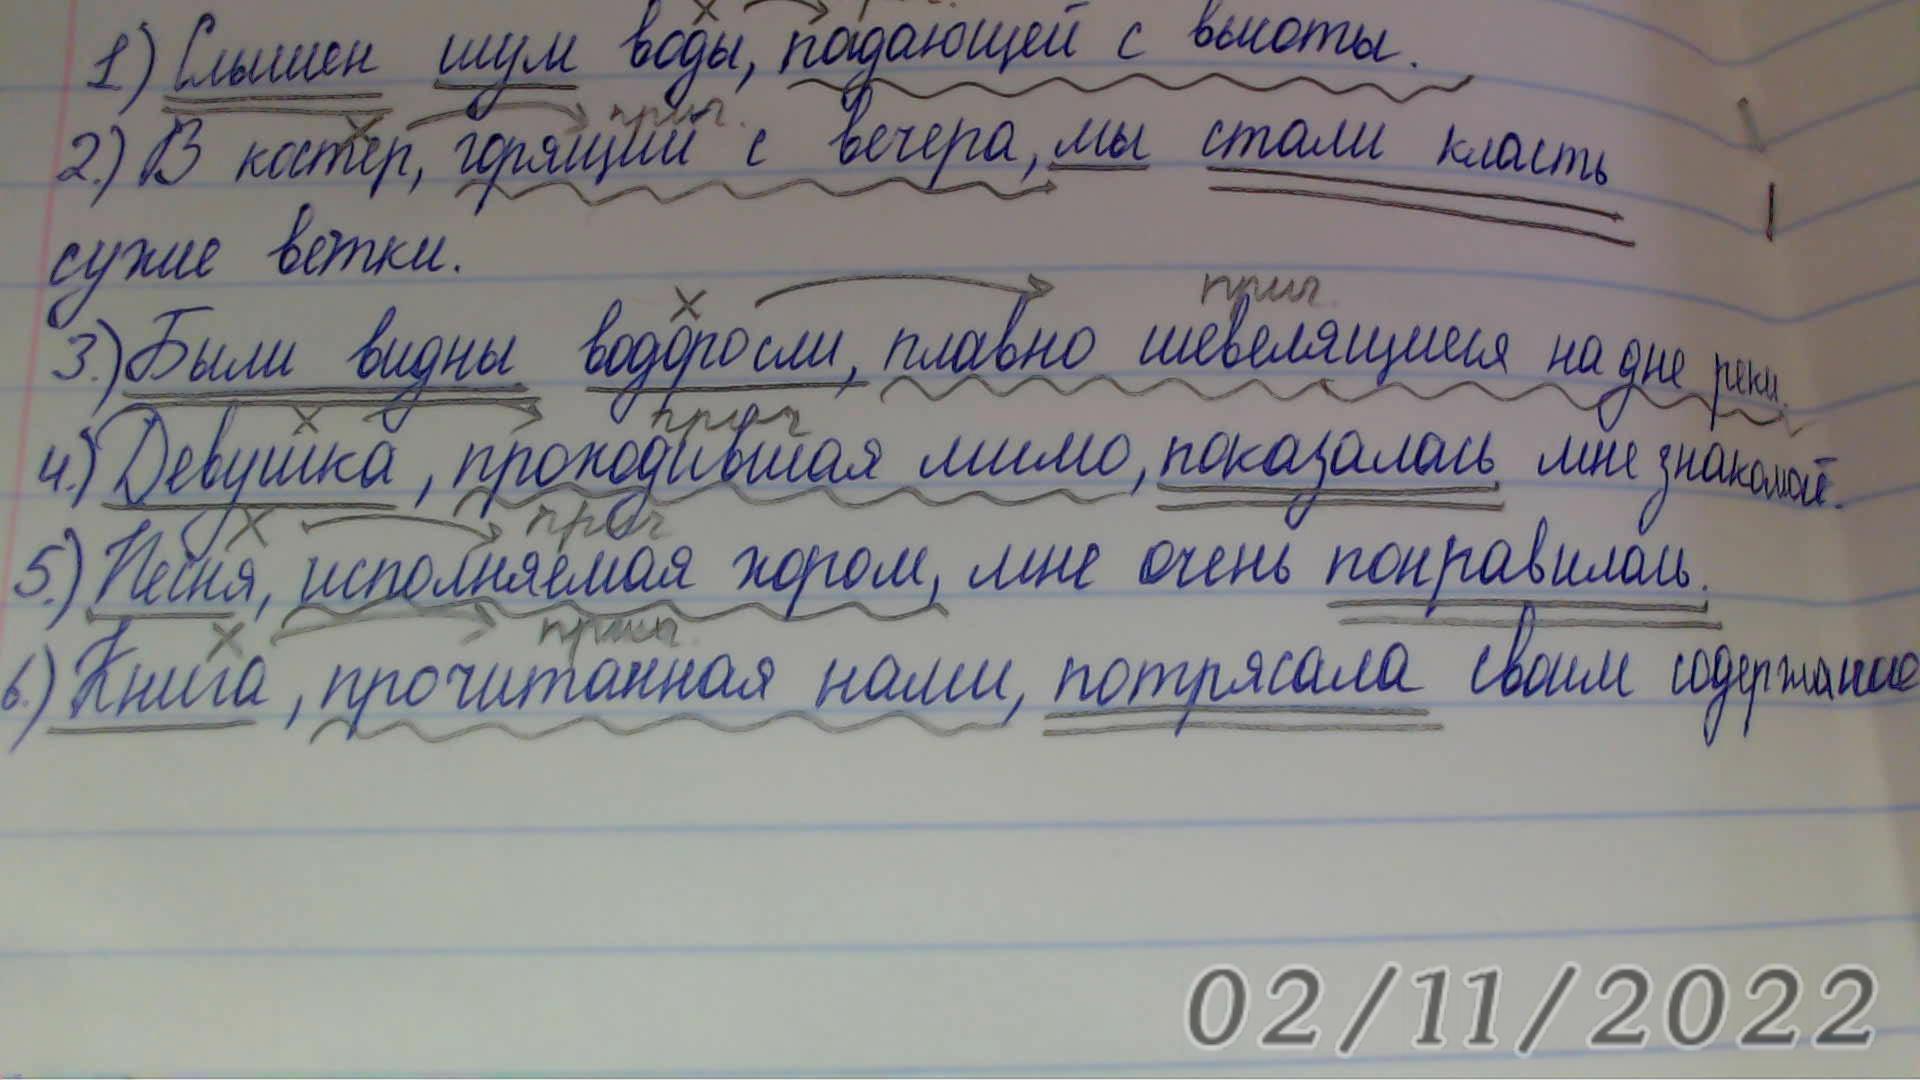 1) Слышен шум воды, падающей с высоты.
прич.
2.) В костёр, горящий с вечера, мы стали класть
сухие ветки.
прич.
3.) Были видны водоросли, плавно шевелящиеся на дне реки.
прич
4.) Девушка, проходившая мимо, показалась мне знакомой.
прич
5.) Песня, исполняемая хором, мне очень понравилась.
прич.
6.) Книга, прочитанная нами, потрясала своим
02/11/2022